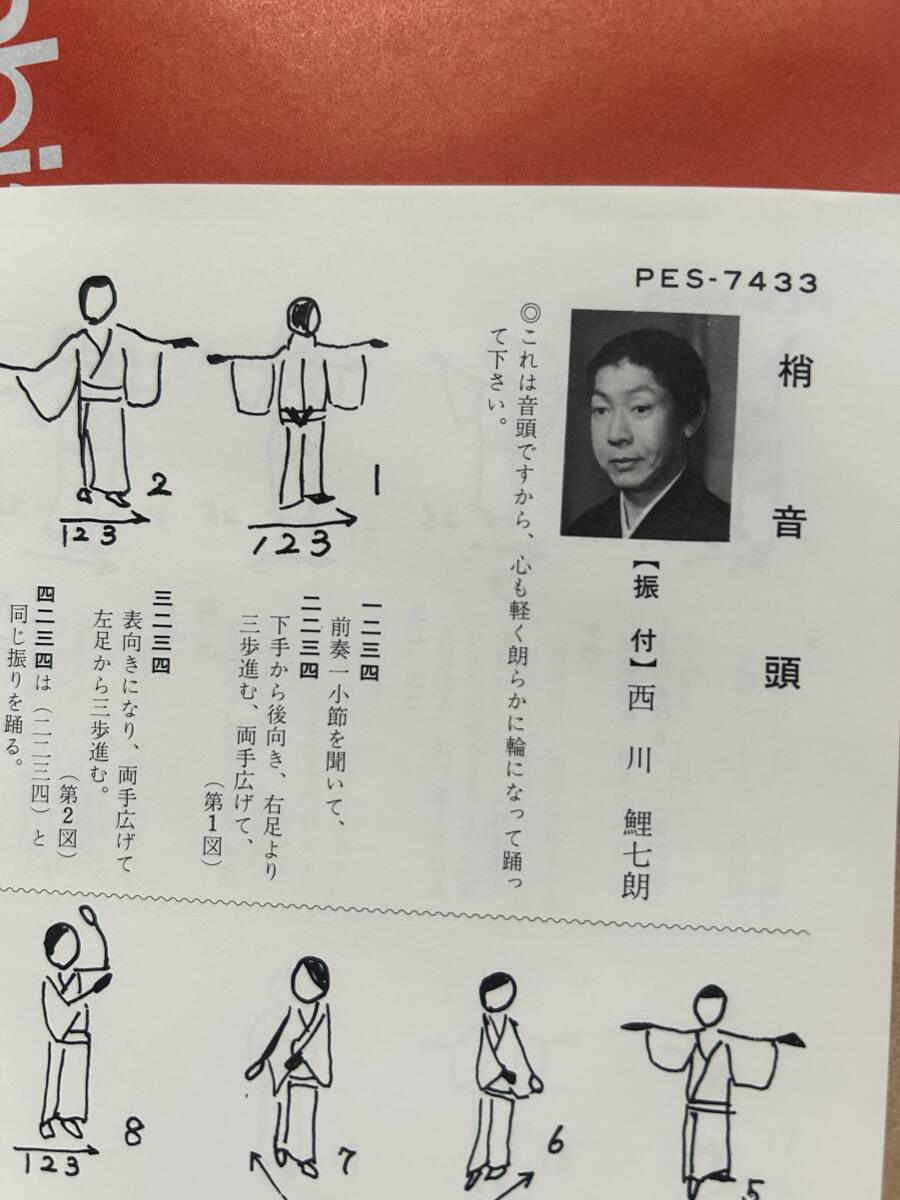 PES-7433
梢音頭
【振付】西川鯉七朗
◎これは音頭ですから、心も軽く朗らかに輪になって踊っ
て下さい。
1
1 2 3
2
1 2 3
一二三四
前奏一小節を聞いて、
二二三四
下手から後向き、右足より
三歩進む、両手広げて、
（第1図）
三二三四
表向きになり、両手広げて
左足から三歩進む。
（第2図）
四二三四は（二二三四）と
同じ振りを踊る。
5
6
7
8
1 2 3